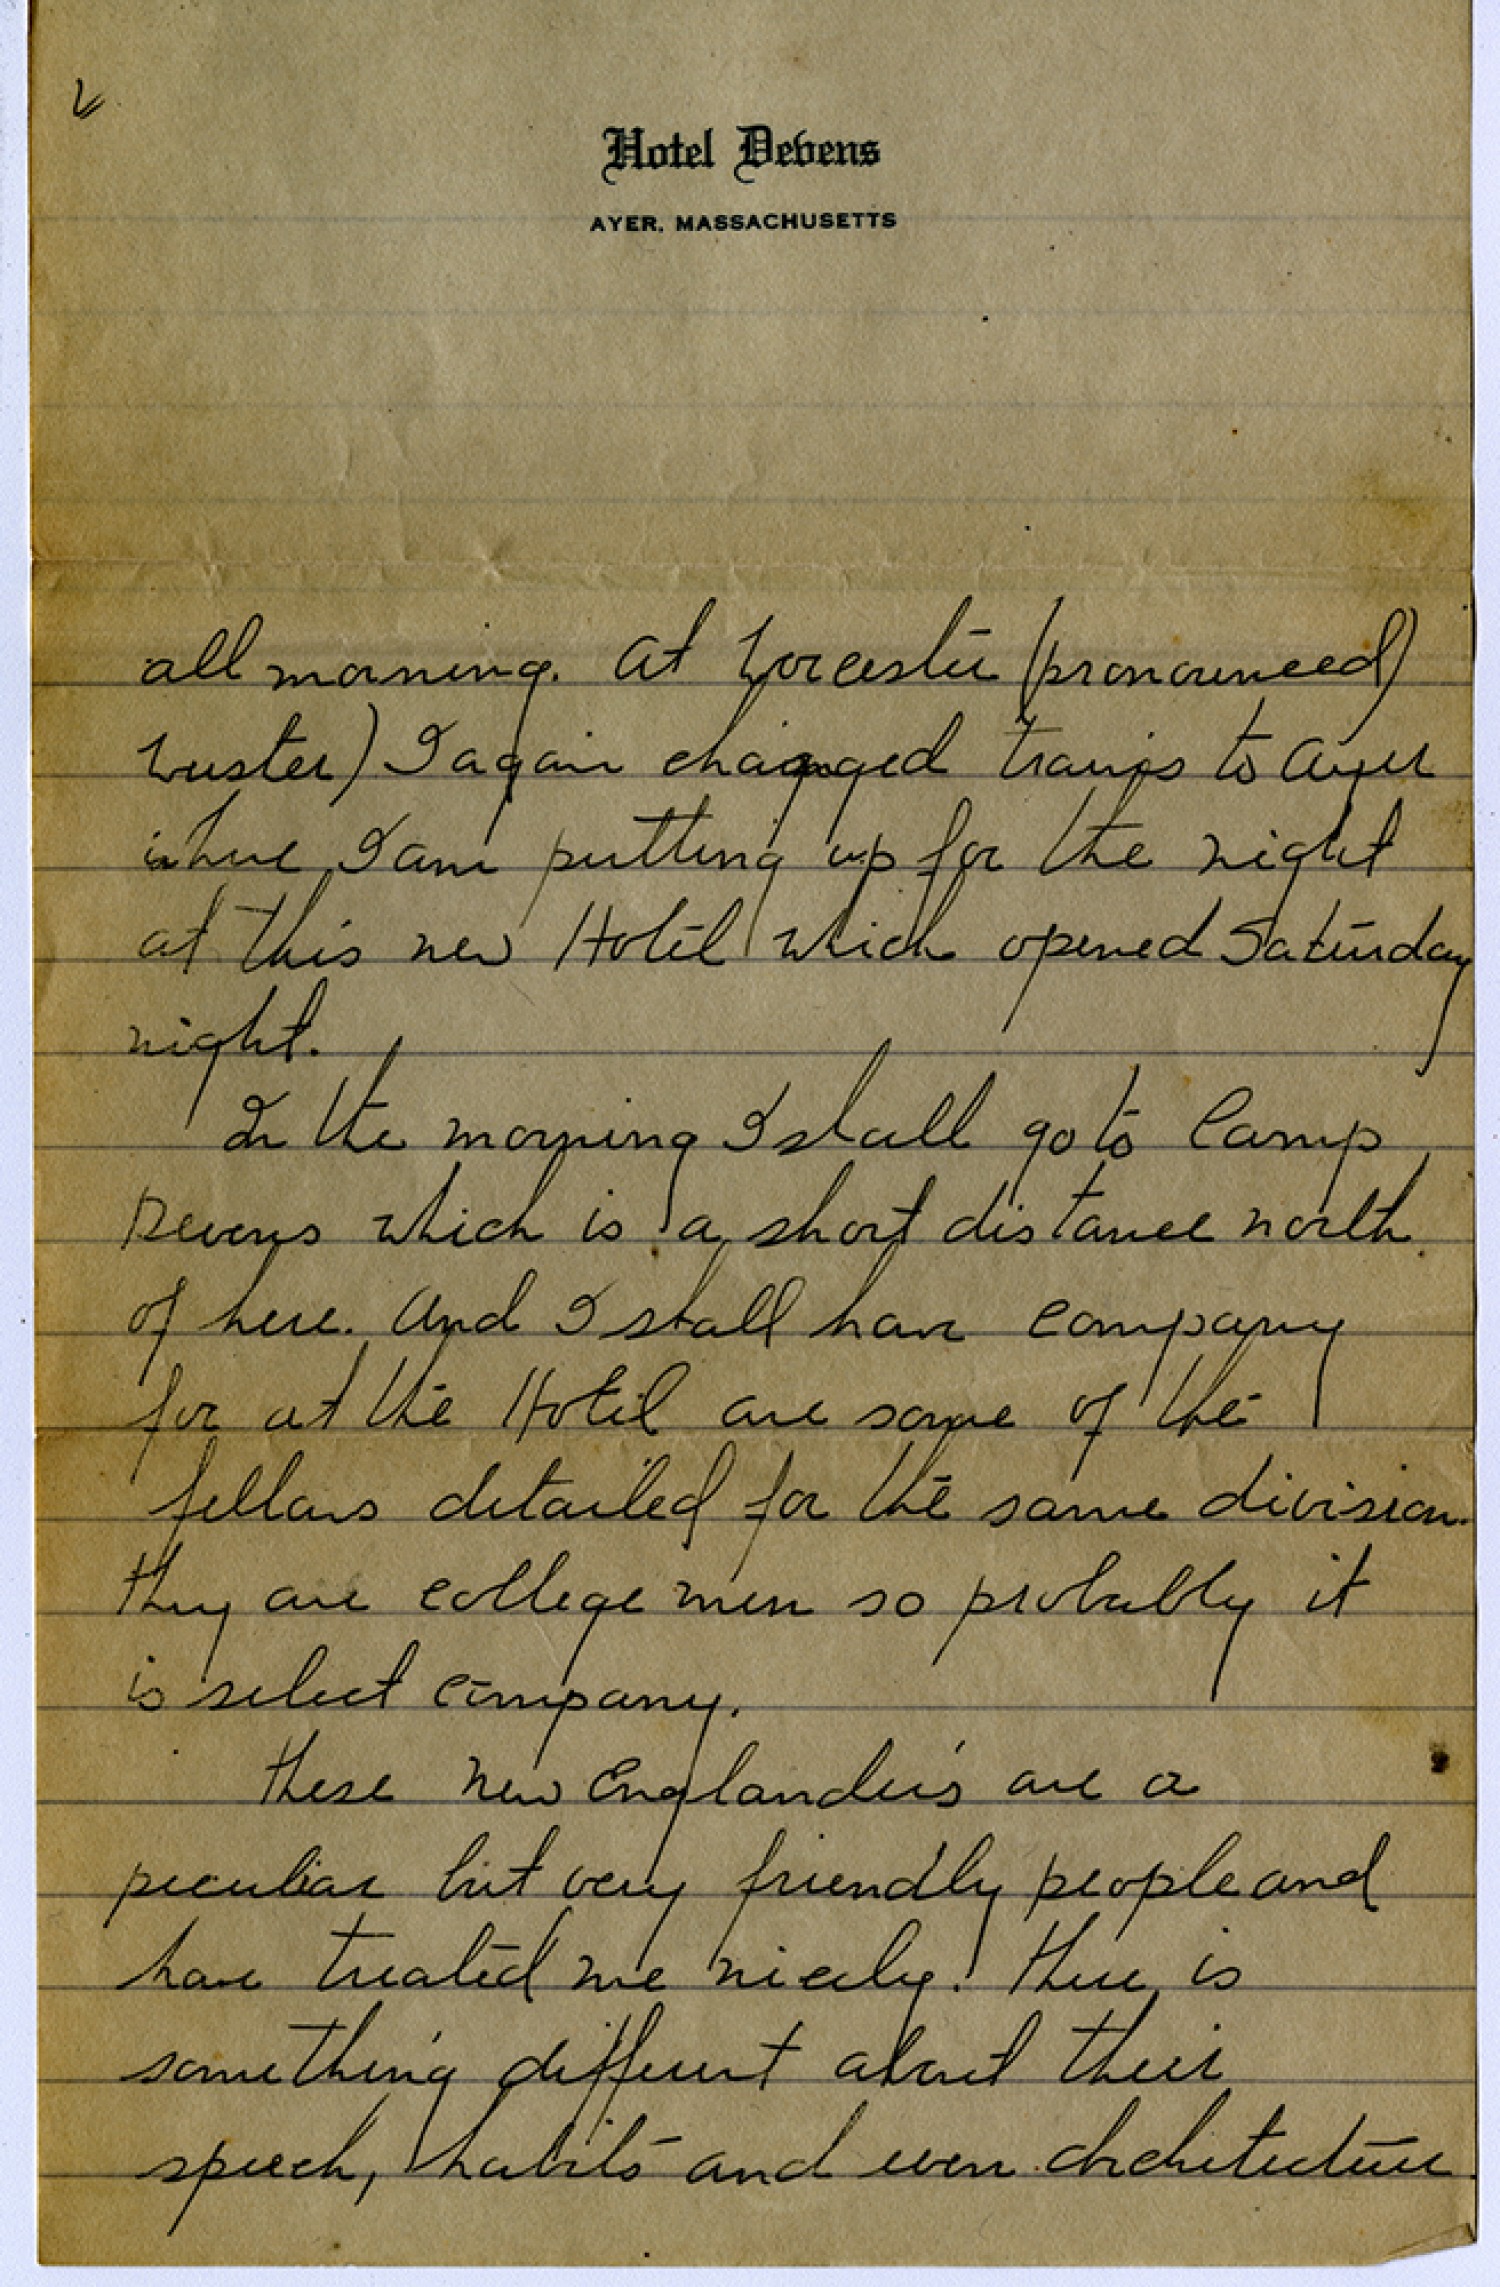 Hotel Devens
AYER, MASSACHUSETTS
all morning. At Worcester (pronounced)
Wuster) I again changed trains to Ayer
where I am putting up for the night
at this new Hotel which opened Saturday
night.
In the morning I shall go to Camp
Devens which is a short distance north
of here. And I shall have company
for at the Hotel are some of the
fellows detailed for the same division.
They are college men so probably it
is select company.
These New Englander's are a
peculiar but very friendly people and
have treated me nicely. There is
something different about their
speech, habits and even architecture.